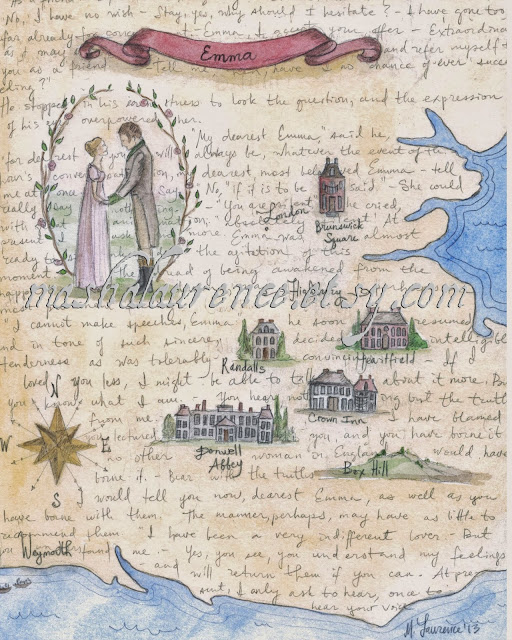 No, I have no wish - Stay, yes, why should I hesitate? - I have gone too
far already to Emma, I accept your offer - Extraordina
as it may Emma and refer myself t
you as a friend tell me have I no chance of ever succe
eding?"
He stopped in his to look the question, and the expression
of his eyes overpowered her.
"My dearest Emma," said he,
"for dearest you will always be, whatever the event of th
hour's conversation dearest, most beloved Emma - tell
me at once. Say "No," if it is to be said." She could
really say nothing. "You are silent," he cried,
with absolutely silent! At
London
Brunswick
Square
present I more." Emma was almost
ready to the agitation of this
moment. The dread of being awakened from the
Highbury
mashalaurence.etsy.com
"I cannot make speeches, Emma he soon resumed
and in tone of such sincere decided intelligible
tenderness as was tolerably convincing "If I
Randalls
Hartfield
loved you less, I might be able to talk about it more. Bu
you know what I am. You hear nothing but the truth
N
Crown Inn
from me. I have blamed
you, lectured you, and you have borne it
W
E
Donwell
Abbey
as no other woman in England would have
borne it. - Bear with the truths
Box Hill
S
I would tell you now, dearest Emma, as well as you
have borne with them. The manner, perhaps, may have as little to
recommend them. I have been a very indifferent lover. But
you understand me. - Yes, you see, you understand my feelings
Weymouth
and will return them if you can. At pres
ent, I only ask to hear, once to
hear your voice
M. Laurence '13